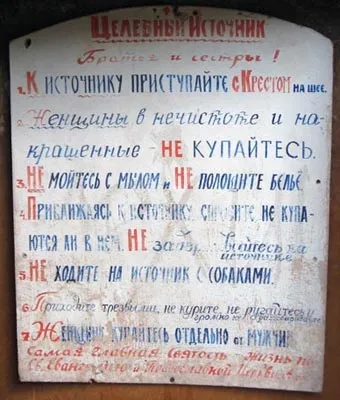 Целебный Источник
Братья и сестры!
1. К источнику приступайте с Крестом на шее.
2. Женщины в нечистоте и на-
крашенные - НЕ купайтесь.
3. НЕ мойтесь с мылом и НЕ полощите бельё.
4. Приближаясь к источнику, спросите, не купа-
ются ли в нем. НЕ на
источнике
5. НЕ ходите на источник с собаками.
6. Приходите трезвыми, не курите, не ругайтесь,
громко не
7. Женщины купайтесь отдельно от мужчин
Самая главная святость жизнь по
Св. Православной